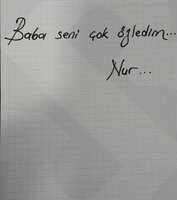 Baba seni çok özledim...
Nur...